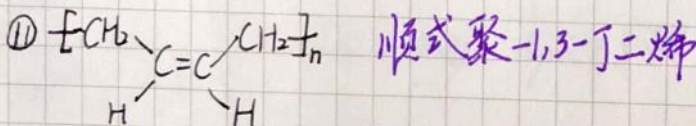 ⑪ -[CH₂ C=C CH₂]-n 顺式聚-1,3-丁二烯
H H